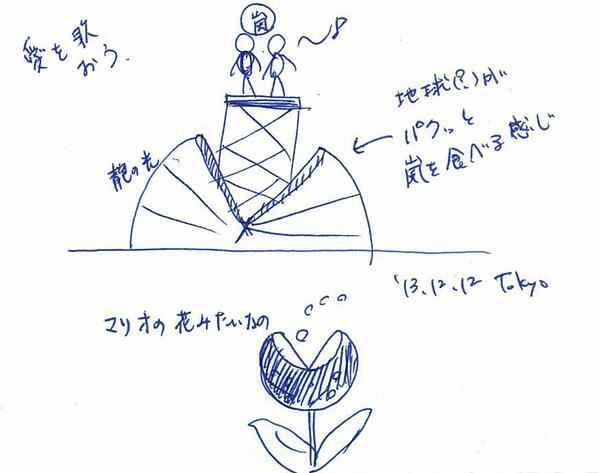 嵐
愛を歌
おう.
地球(?)が
パクッと
嵐を食べる感じ
の光
'13.12.12 Tokyo
マリオの花みたいなの